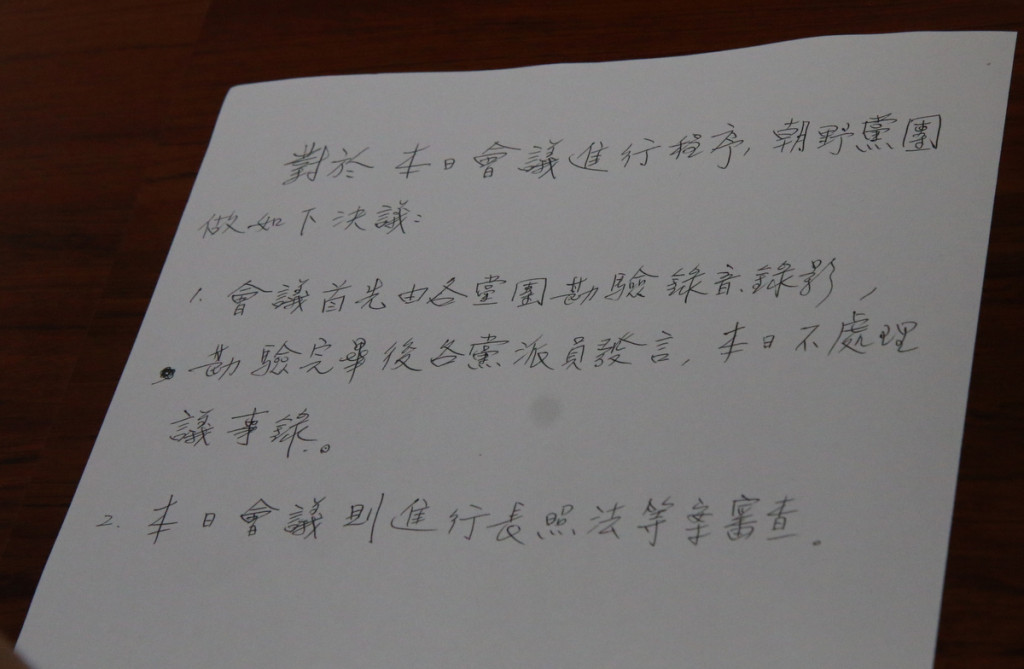 對於本日會議進行程序,朝野黨團
做如下決議:
1. 會議首先由各黨團勘驗錄音.錄影,
勘驗完畢後各黨派員發言,本日不處理
議事錄。
2. 本日會議則進行長照法等案審查。